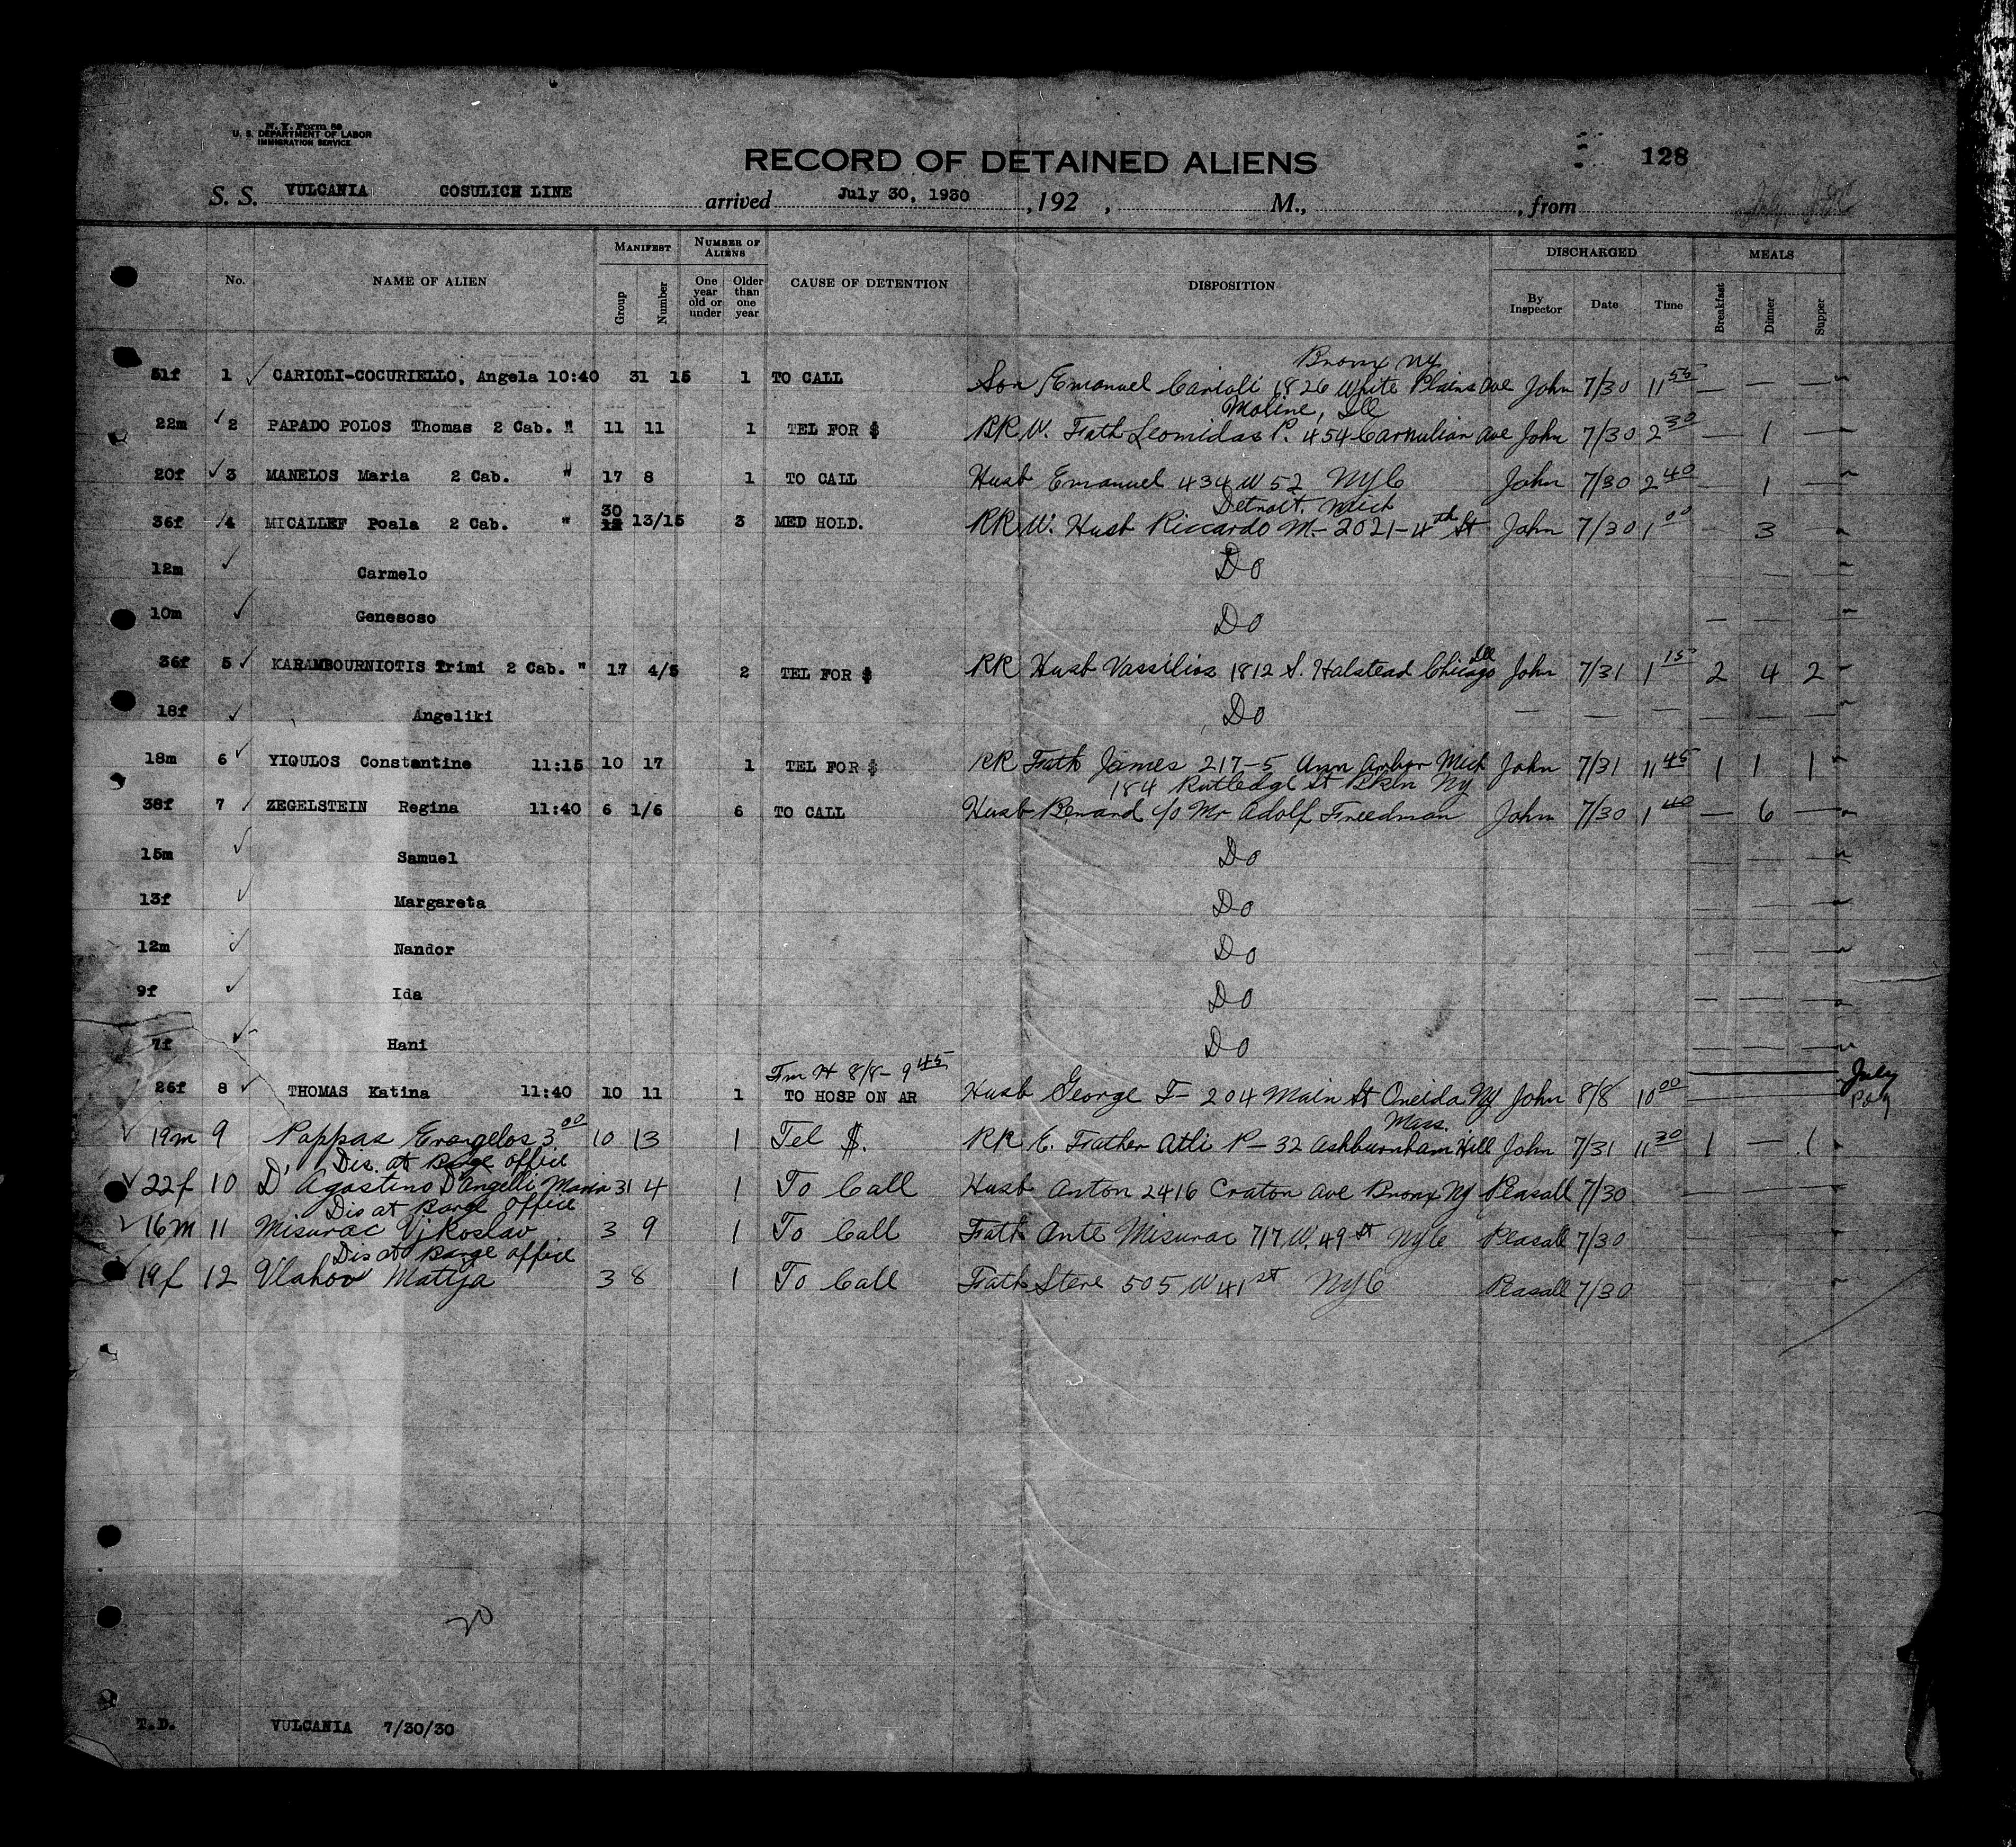 N. Y. Form 89
U. S. DEPARTMENT OF LABOR
IMMIGRATION SERVICE
RECORD OF DETAINED ALIENS
128
S. S. VULCANIA COSULICH LINE arrived July 30, 1930, 192 , M., from
No. NAME OF ALIEN MANIFEST Group Number NUMBER OF ALIENS One year old or under Older than one year CAUSE OF DETENTION DISPOSITION DISCHARGED By Inspector Date Time MEALS Breakfast Dinner Supper
Bronx NY
51f 1 ✓ CARIOLI-COCURIELLO, Angela 10:40 31 15 1 TO CALL Son Emanuel Carioli 1826 White Plains Ave John 7/30 11 55 — — —
Moline, Ill
22m ✓ 2 PAPADO POLOS Thomas 2 Cab. " 11 11 1 TEL FOR $ RR W. Fath Leonidas P. 454 Ave John 7/30 2 30 — 1 —
20f ✓ 3 MANELOS Maria 2 Cab. " 17 8 1 TO CALL Husb Emanuel 434 W 52 NYC John 7/30 2 40 — 1 —
Detroit, Mich
36f ✓ 4 MICALLEF Poala 2 Cab. " 30 13/15 3 MED HOLD. RR W. Husb Riccardo M- 2021-4th St John 7/30 1 00 — 3 —
12m ✓ Carmelo Do — — —
10m ✓ Genesoso Do — — —
36f 5 ✓ KARAMBOURNIOTIS Trimi 2 Cab. " 17 4/5 2 TEL FOR $ RR Husb Vassilios 1812 S. Halstead Chicago Ill John 7/31 1 15 2 4 2
18f ✓ Angeliki Do — — — — — —
18m 6 ✓ YIQULOS Constantine 11:15 10 17 1 TEL FOR $ RR Fath James 217-5 Ann Arbor Mich John 7/31 11 45 1 1 1
184 Rutledge St Bkln Ny
38f 7 ✓ ZEGELSTEIN Regina 11:40 6 1/6 6 TO CALL Husb Benard c/o Mr Adolf Freedman John 7/30 1 40 — 6 —
15m ✓ Samuel Do — — —
13f ✓ Margareta Do — — —
12m ✓ Nandor Do — — —
9f ✓ Ida Do — — —
7f ✓ Hani Do — — —
Fm H 8/8 - 9 45
26f 8 ✓ THOMAS Katina 11:40 10 11 1 TO HOSP ON AR Husb George T- 204 Main St Oneida NY John 8/8 10 00 — — — July
Mass.
✓ 19m 9 Pappas Evangelos 3 00 10 13 1 Tel $. RR E. Father Atli P- 32 Ashburnham Hill John 7/31 11 30 1 — 1
Dis. at Barge office
✓ 22f 10 D'Agostino D'Angelli Maria 31 4 1 To Call Husb Anton 2416 Ave Bronx NY Peasall 7/30 — — —
Dis at Barge Office
✓ 16m 11 Misurac Vjkoslav 3 9 1 To Call Fath Ante Misurac 717 W. 49 St NYC Peasall 7/30 — — —
Dis at Barge office
19f 12 Vlahov Matija 3 8 1 To Call Fath Steve 505 W 41st NYC Peasall 7/30 — — —
20
T.D. VULCANIA 7/30/30